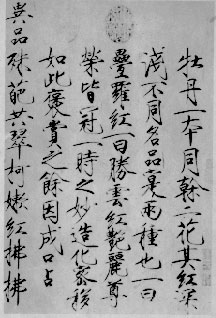 牡丹一本同幹二花其紅深
淺不同名品實兩種也一曰
疊羅紅一曰勝雲紅艷麗尊
榮皆冠一時之妙造化密移
如此褒賞之餘因成口占
異品殊葩共翠柯嫩紅拂拂